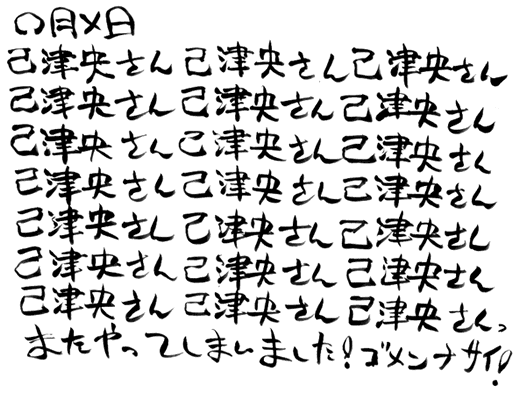 〇月×日
己津央さん 己津央さん 己津央さん
己津央さん 己津央さん 己津央さん
己津央さん 己津央さん 己津央さん
己津央さん 己津央さん 己津央さん
己津央さん 己津央さん 己津央さん
己津央さん 己津央さん 己津央さん
己津央さん 己津央さん 己津央さんっ
またやってしまいました!ゴメンナサイ!